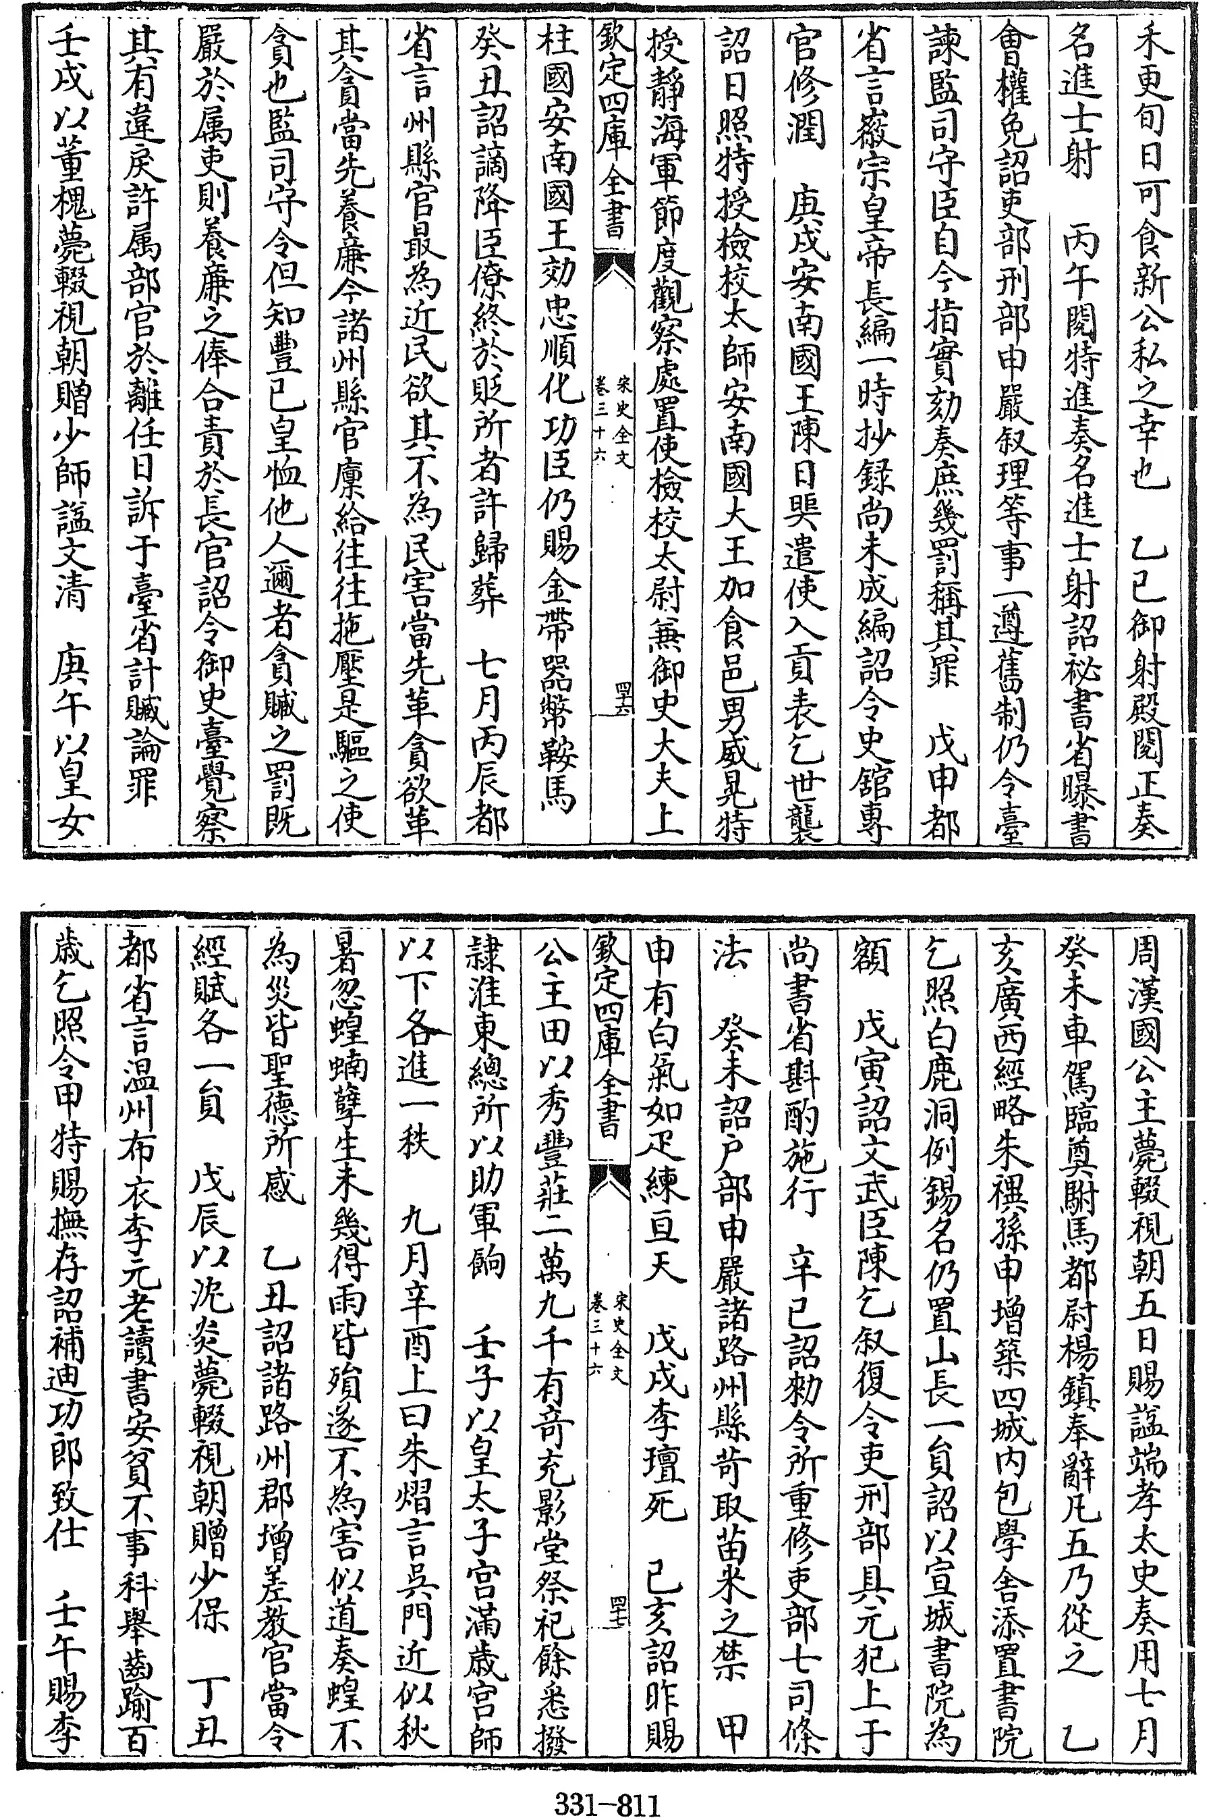 禾更旬日可食新公私之幸也　乙已御射殿閱正奏
名進士射　丙午閱特進奏名進士射詔祕書省曝書
會權免詔吏部刑部申嚴叙理等事一遵舊制仍令臺
諫監司守臣自今指實劾奏庶幾罰稱其罪　戊申都
省言徽宗皇帝長編一時抄録尚未成編詔令史舘專
官修潤　庚戌安南國王陳日煚遣使入貢表乞世襲
詔日照特授檢校太師安南國大王加食邑男威晃特
授靜海軍節度觀察處置使檢校太尉兼御史大夫上
欽定四庫全書　宋史全文　卷三十六　四十六
柱國安南國王効忠順化功臣仍賜金帶器幣鞍馬
癸丑詔謫降臣僚終於貶所者許歸葬　七月丙辰都
省言州縣官最為近民欲其不為民害當先革貪欲革
其貪當先養廉今諸州縣官廪給往往拖壓是驅之使
貪也監司守令但知豐已皇恤他人邇者貪贓之罰既
嚴於属吏則養廉之俸合責於長官詔令御史臺覺察
其有違戾許属部官於離任日訴于臺省計贓論罪
壬戌以董槐薨輟視朝贈少師諡文清　庚午以皇女
周漢國公主薨輟視朝五日賜諡端孝太史奏用七月
癸未車駕臨奠駙馬都尉楊鎮奉辭凡五乃從之　乙
亥廣西經略朱禩孫申增築四城内包學舍添置書院
乞照白鹿洞例錫名仍置山長一員詔以宣城書院為
額　戊寅詔文武臣陳乞叙復令吏刑部具元犯上于
尚書省斟酌施行　辛已詔勑令所重修吏部七司條
法　癸未詔户部申嚴諸路州縣苛取苗米之禁　甲
申有白氣如疋練亘天　戊戌李璮死　已亥詔昨賜
欽定四庫全書　宋史全文　卷三十六　四十七
公主田以秀豐莊二萬九千有奇充影堂祭祀餘悉撥
隸淮東總所以助軍餉　壬子以皇太子宫滿歲宫師
以下各進一秩　九月辛酉上曰朱熠言吳門近似秋
暑忽蝗蝻孽生未幾得雨皆殞遂不為害似道奏蝗不
為災皆聖德所感　乙丑詔諸路州郡增差教官當令
經賦各一員　戊辰以沈炎薨輟視朝贈少保　丁丑
都省言温州布衣李元老讀書安貧不事科舉齒踰百
歲乞照令甲特賜撫存詔補迪功郎致仕　壬午賜李
331-811